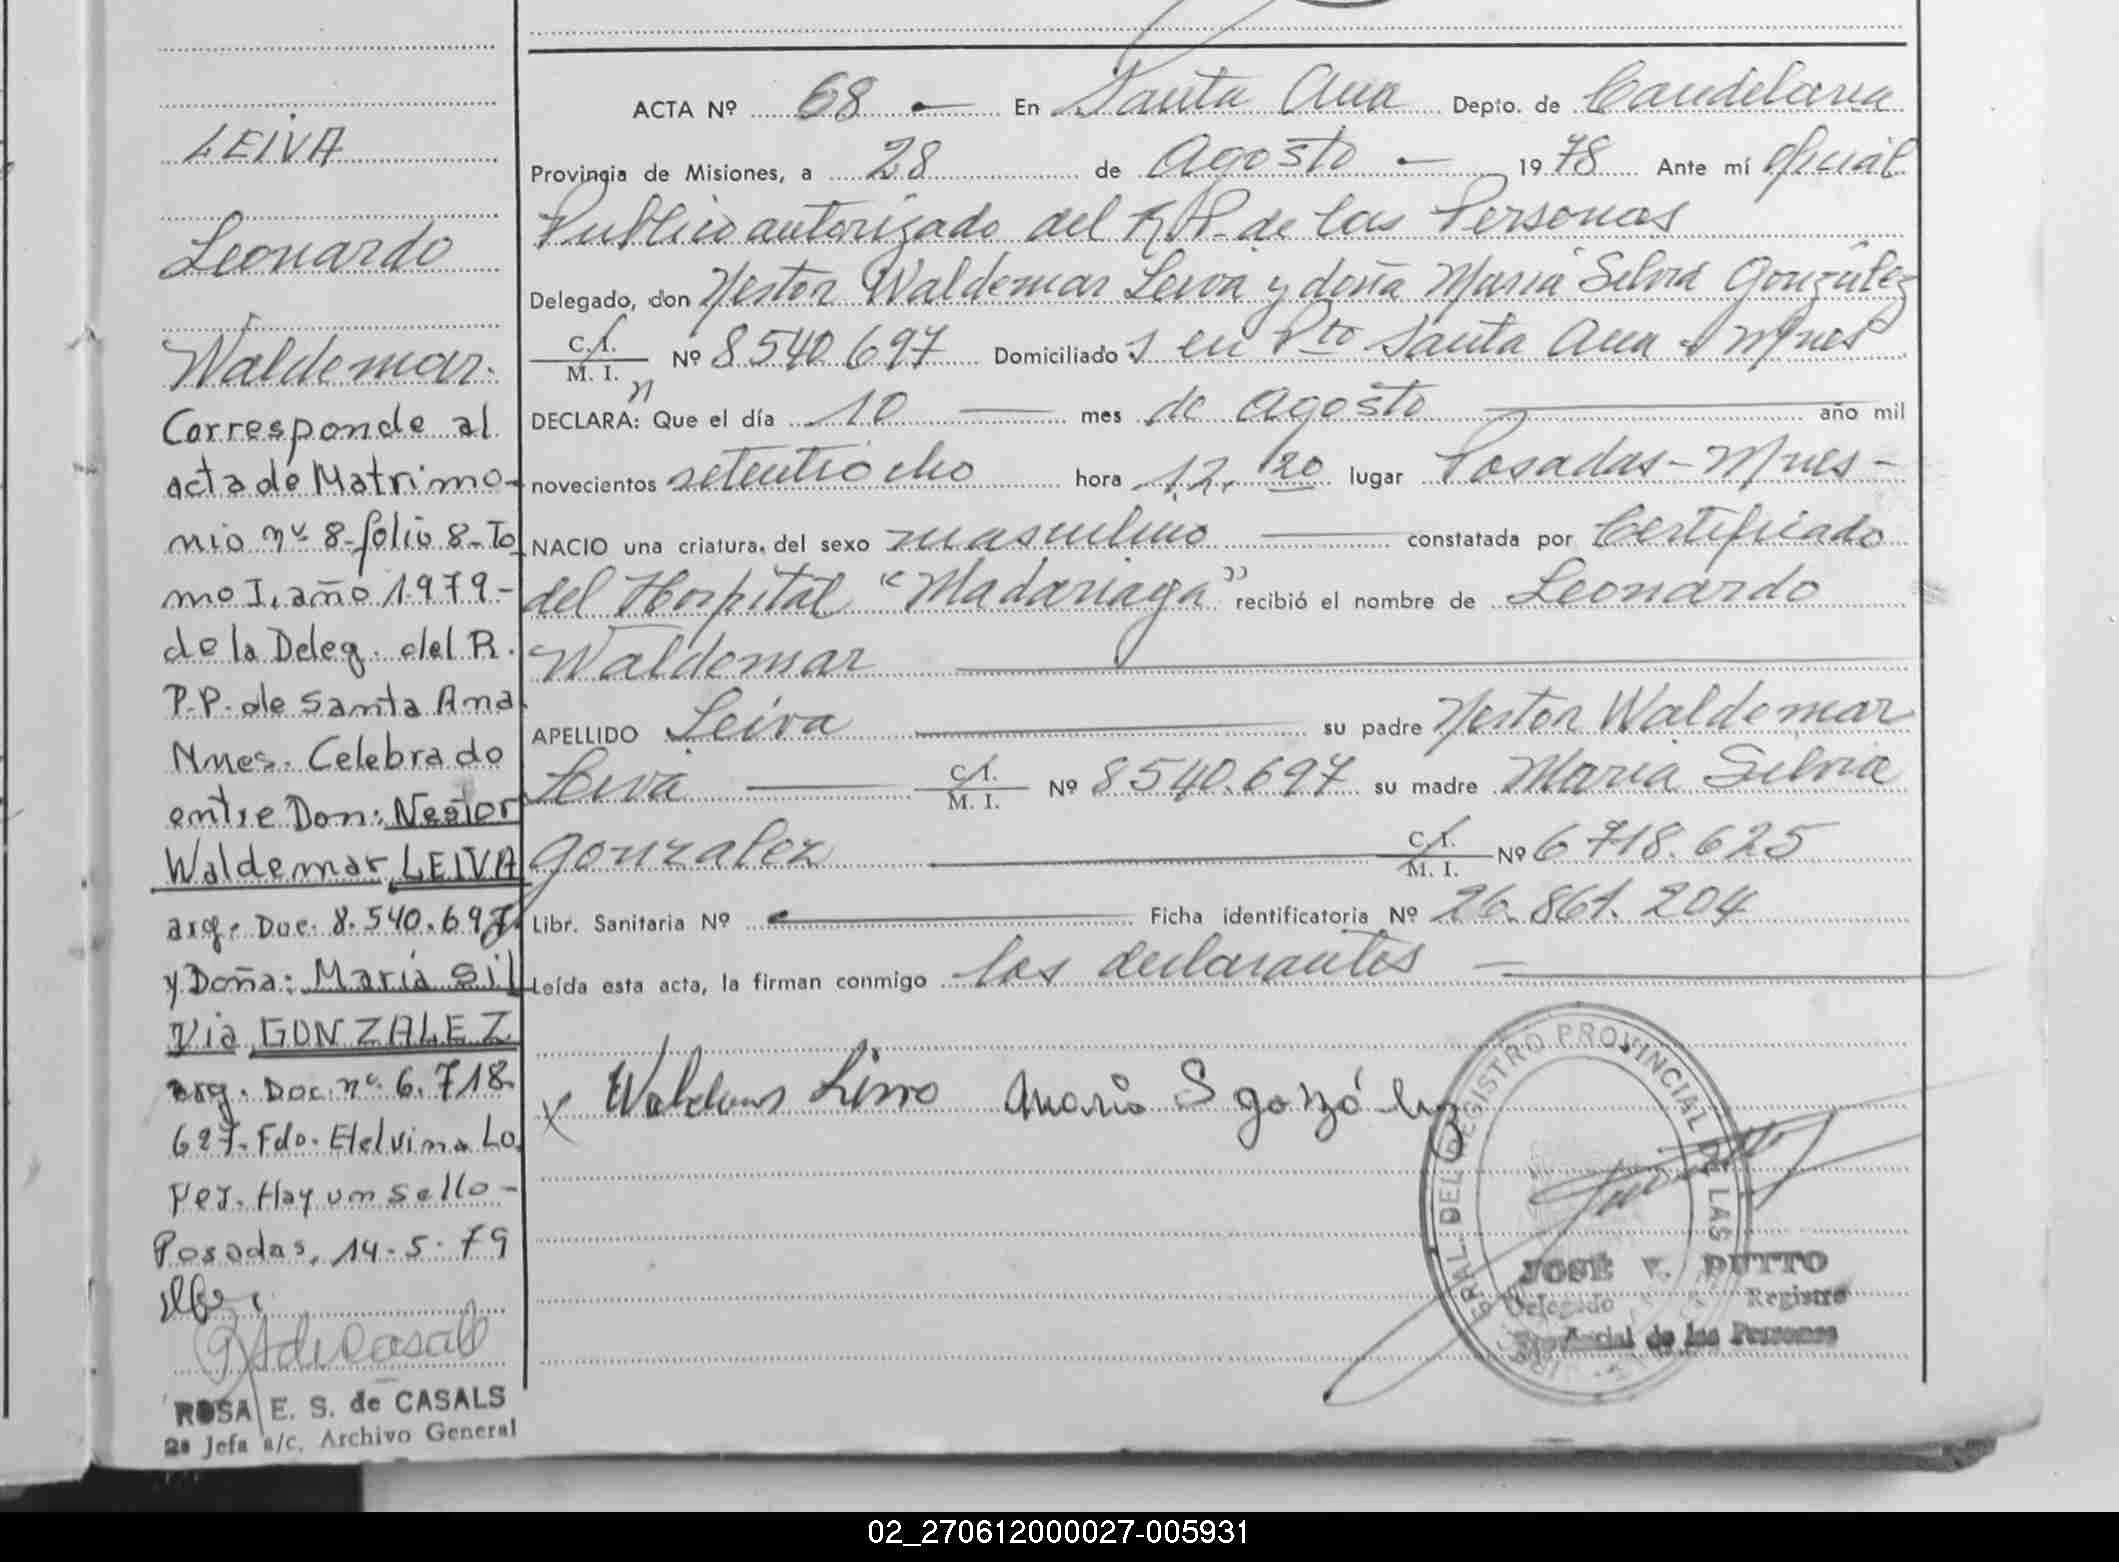 LEIVA
Leonardo
Waldemar.
Corresponde al
acta de Matrimo-
nio nº 8-folio 8-To
mo I, año 1.979-
de la Deleg. del R.
P.P. de Santa Ana
Mnes. Celebrado
entre Don: Nestor
Waldemar LEIVA
arg. Doc. 8.540.697
y Doña: María Sil
via GONZALEZ
arg. Doc. nº 6.718.
627. Fdo. Etelvina Lo
pez. Hay un sello-
Posadas, 14-5-79
ROSA E. S. de CASALS
2ª Jefa a/c. Archivo General
ACTA Nº 68 En Santa Ana Depto. de Candelaria
Provincia de Misiones, a 28 de Agosto 1978 Ante mí oficial
Publico autorizado del R.P. de las Personas
Delegado, don Nestor Waldemar Leiva y doña Maria Silvia González
C.I. M. I. Nº 8.540.697 Domiciliado s en Pto Santa Ana - Mnes
DECLARA: n Que el día 10 mes de agosto año mil
novecientos setentiocho hora 12.20 lugar Posadas-Mnes-
NACIO una criatura del sexo masculino constatada por Certificado
del Hospital "Madariaga" recibió el nombre de Leonardo
Waldemar
APELLIDO Leiva su padre Nestor Waldemar
Leiva C.I. M. I. Nº 8540.697 su madre Maria Silvia
Gonzalez C.I. M. I. Nº 6718.625
Libr. Sanitaria Nº Ficha identificatoria Nº 26.861.204
Leída esta acta, la firman conmigo los declarantes
x Maria S gonzález
GRAL. DEL REGISTRO PROVINCIAL DE LAS
JOSÉ V. DUTTO
Delegado Registro
Provincial de las Personas
02_270612000027-005931